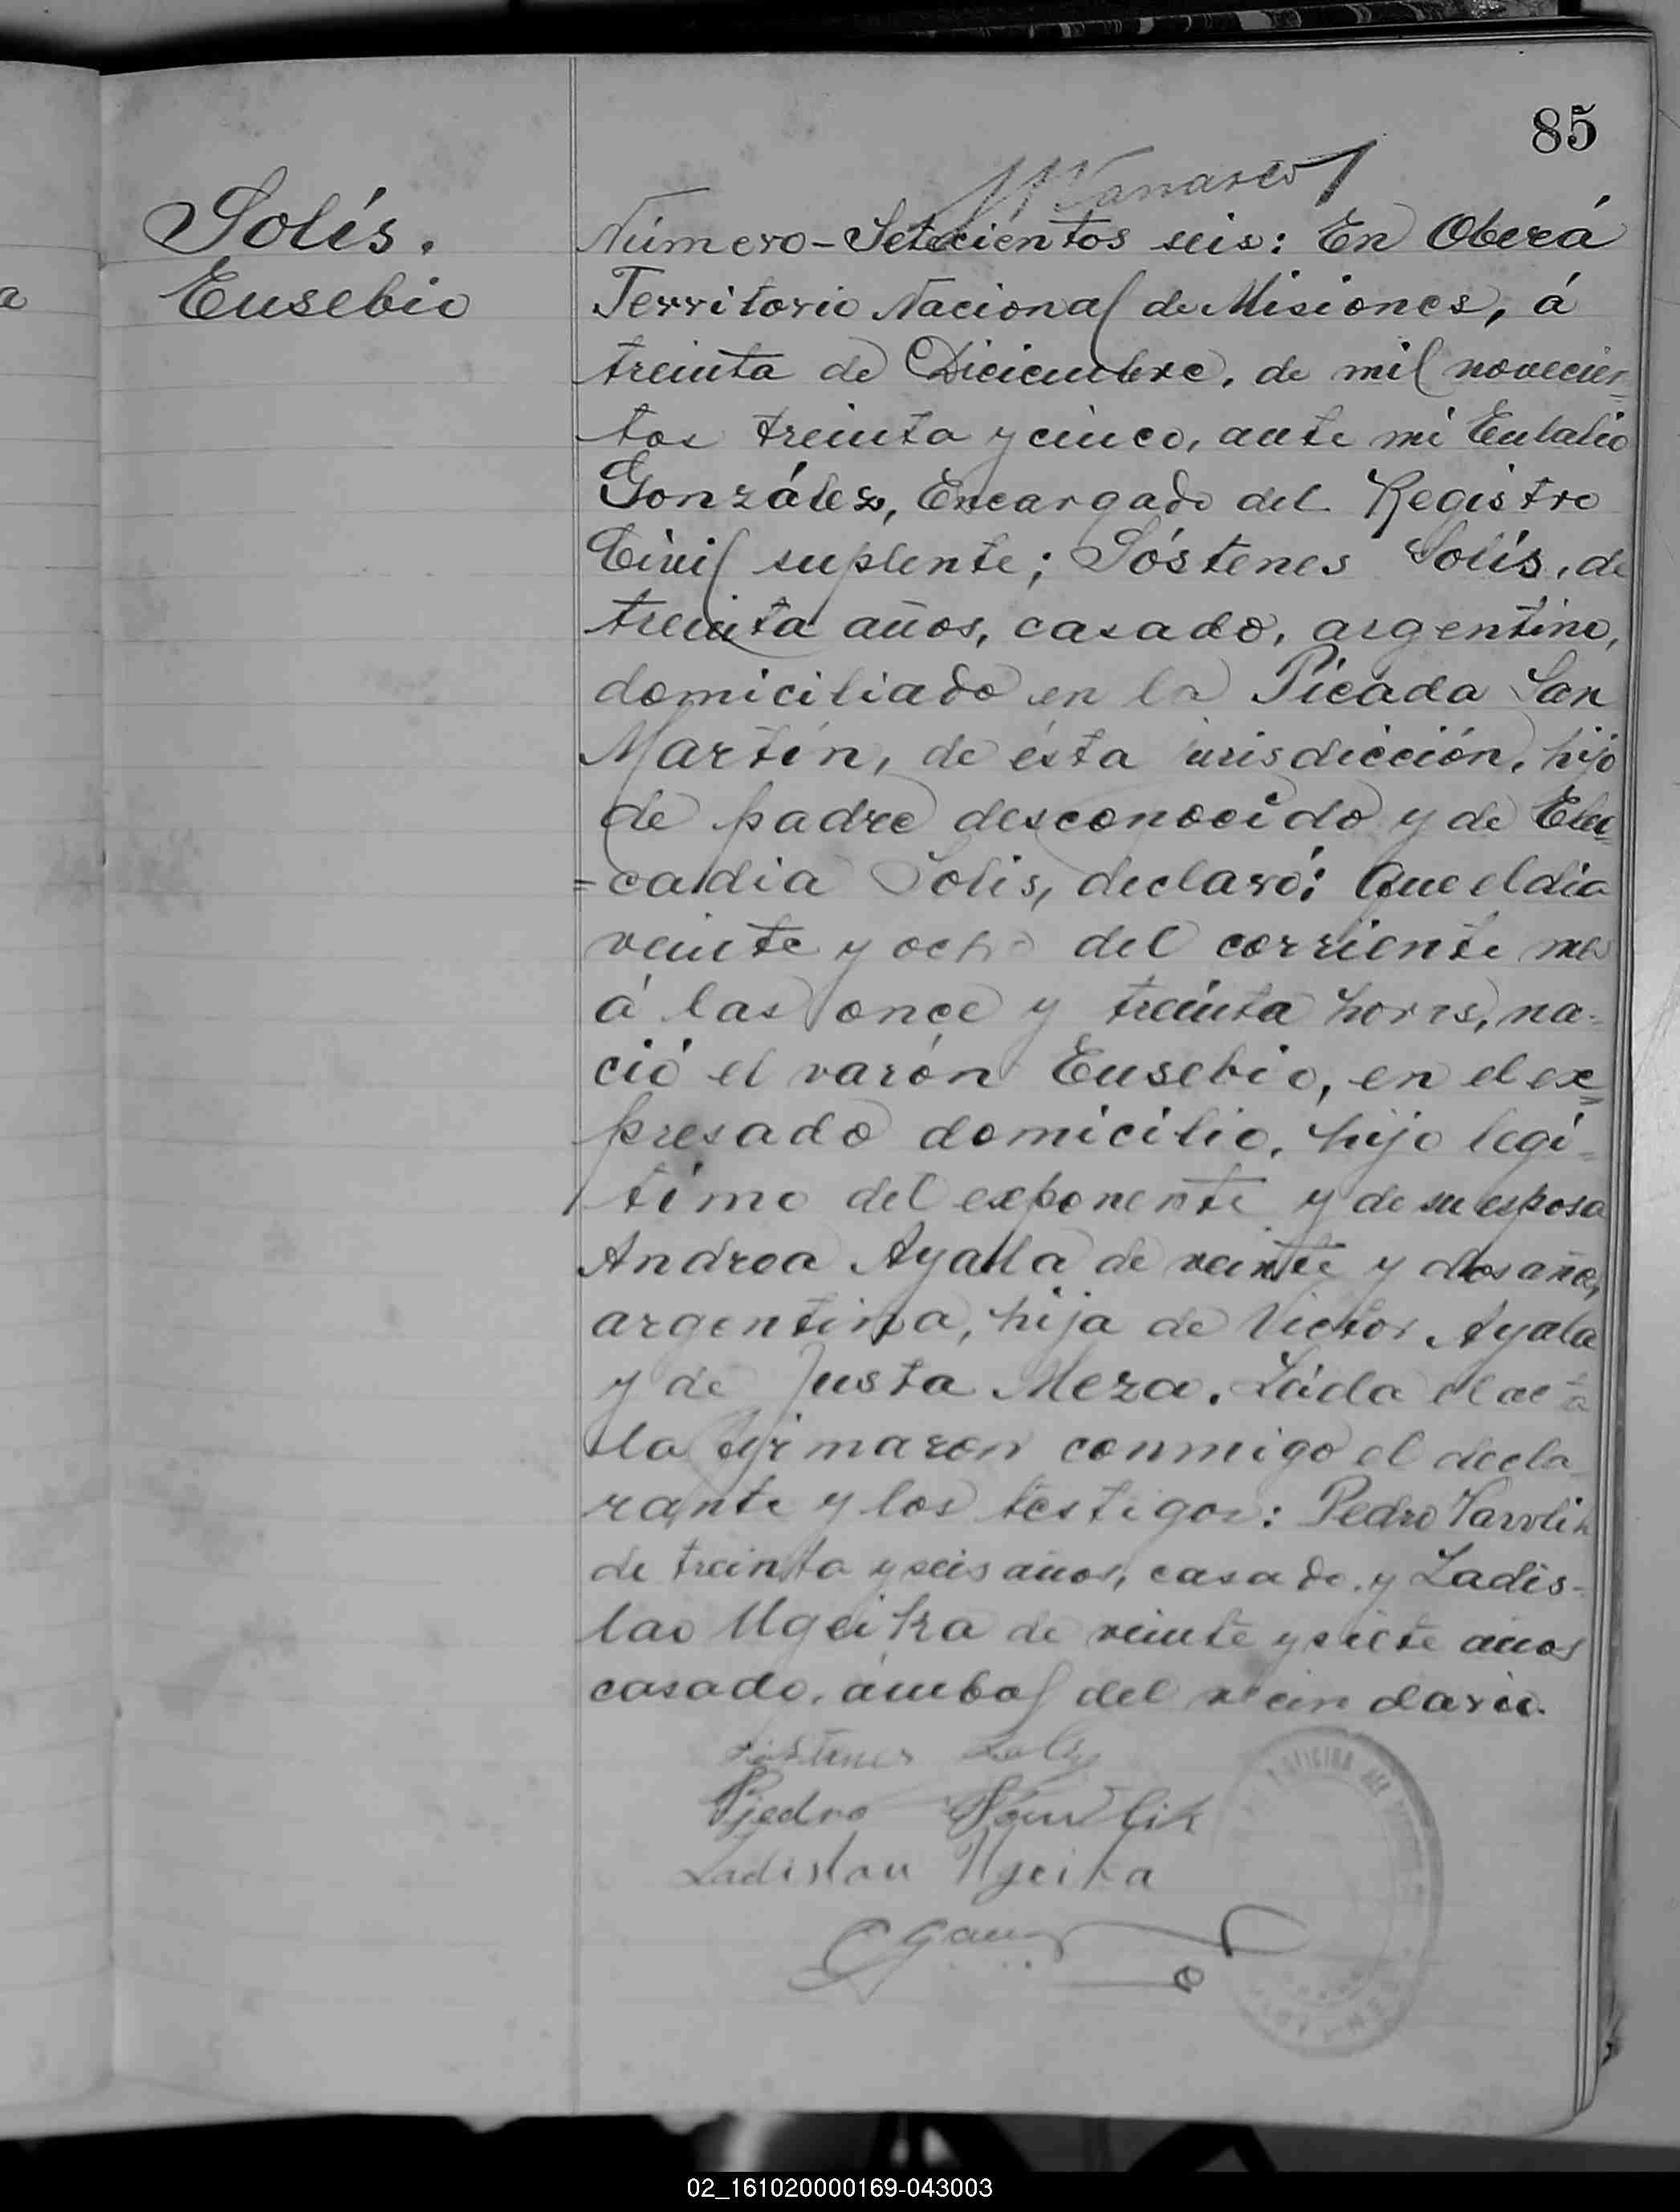 85
Solís.
Eusebio
Número - Setecientos seis: En Oberá
Territorio Nacional de Misiones, á
treinta de Diciembre, de mil novecien=
tos treinta y cinco, ante mi Eulalio
González, Encargado del Registro
Civil suplente; Sóstenes Solís, de
treinta años, casado, argentino,
domiciliado en la Picada San
Martín, de ésta jurisdicción, hijo
de padre desconocido y de Eleo=
=cadia Solis, declaró: Que el día
veinte y ocho del corriente mes
á las once y treinta horas, na-
ció el varón Eusebio, en el ex=
presado domicilio, hijo legí=
timo del exponente y de su esposa
Andrea Ayala de veinte y dos años,
argentina, hija de Victor Ayala
y de Justa Meza. Leída el acta
la firmaron conmigo el decla
rante y los testigos: Pedro
de treinta y seis años, casado, y Ladis-
lao Ugeika de veinte y siete años
casado, ámbos del vecindario.
Sóstenes Solis
Pedro
Ladislau Ugeika
OFICINA DEL
02_161020000169-043003